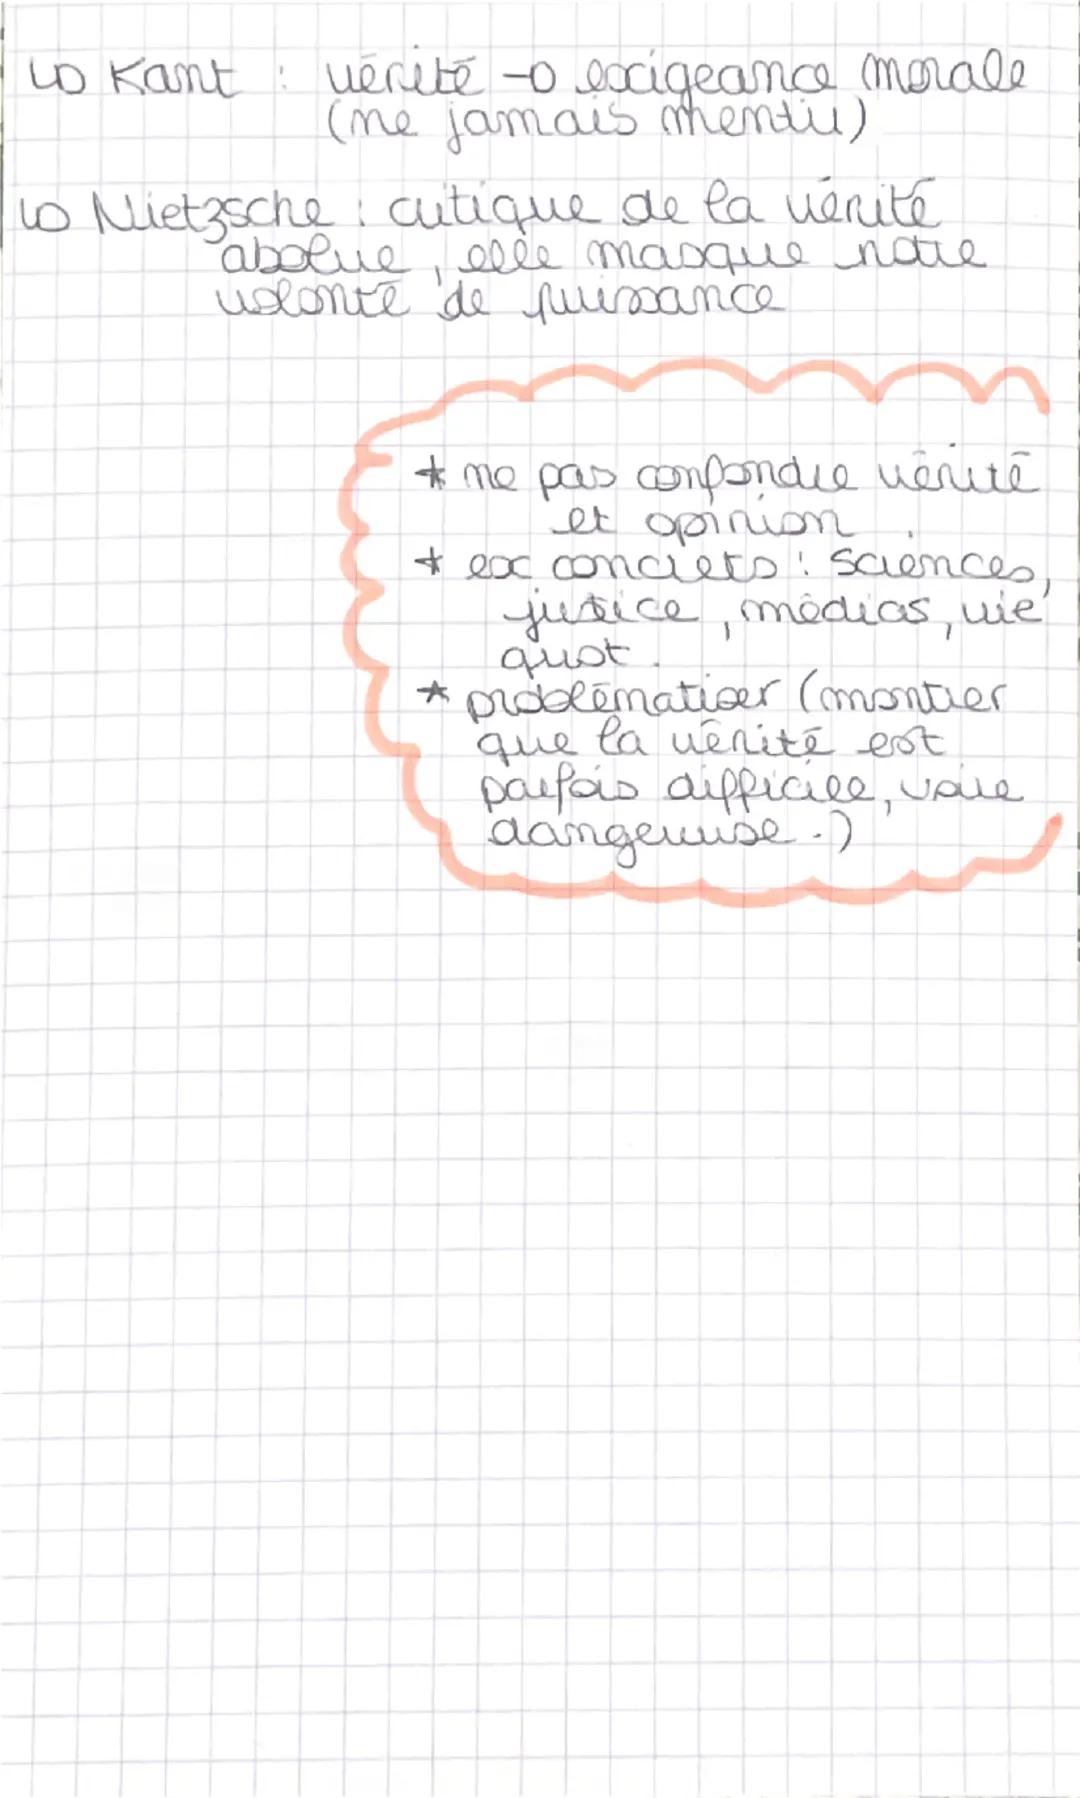 ↳ Kant : vérité → exigeance morale
(ne jamais mentir)
↳ Nietzsche : critique de la vérité
absolue, elle masque notre
volonté de puissance
* ne pas confondre vérité
et opinion
* ex concrets : sciences,
justice, médias, vie
quot.
* problématiser (montrer
que la vérité est
parfois difficile, voire
dangereuse.)